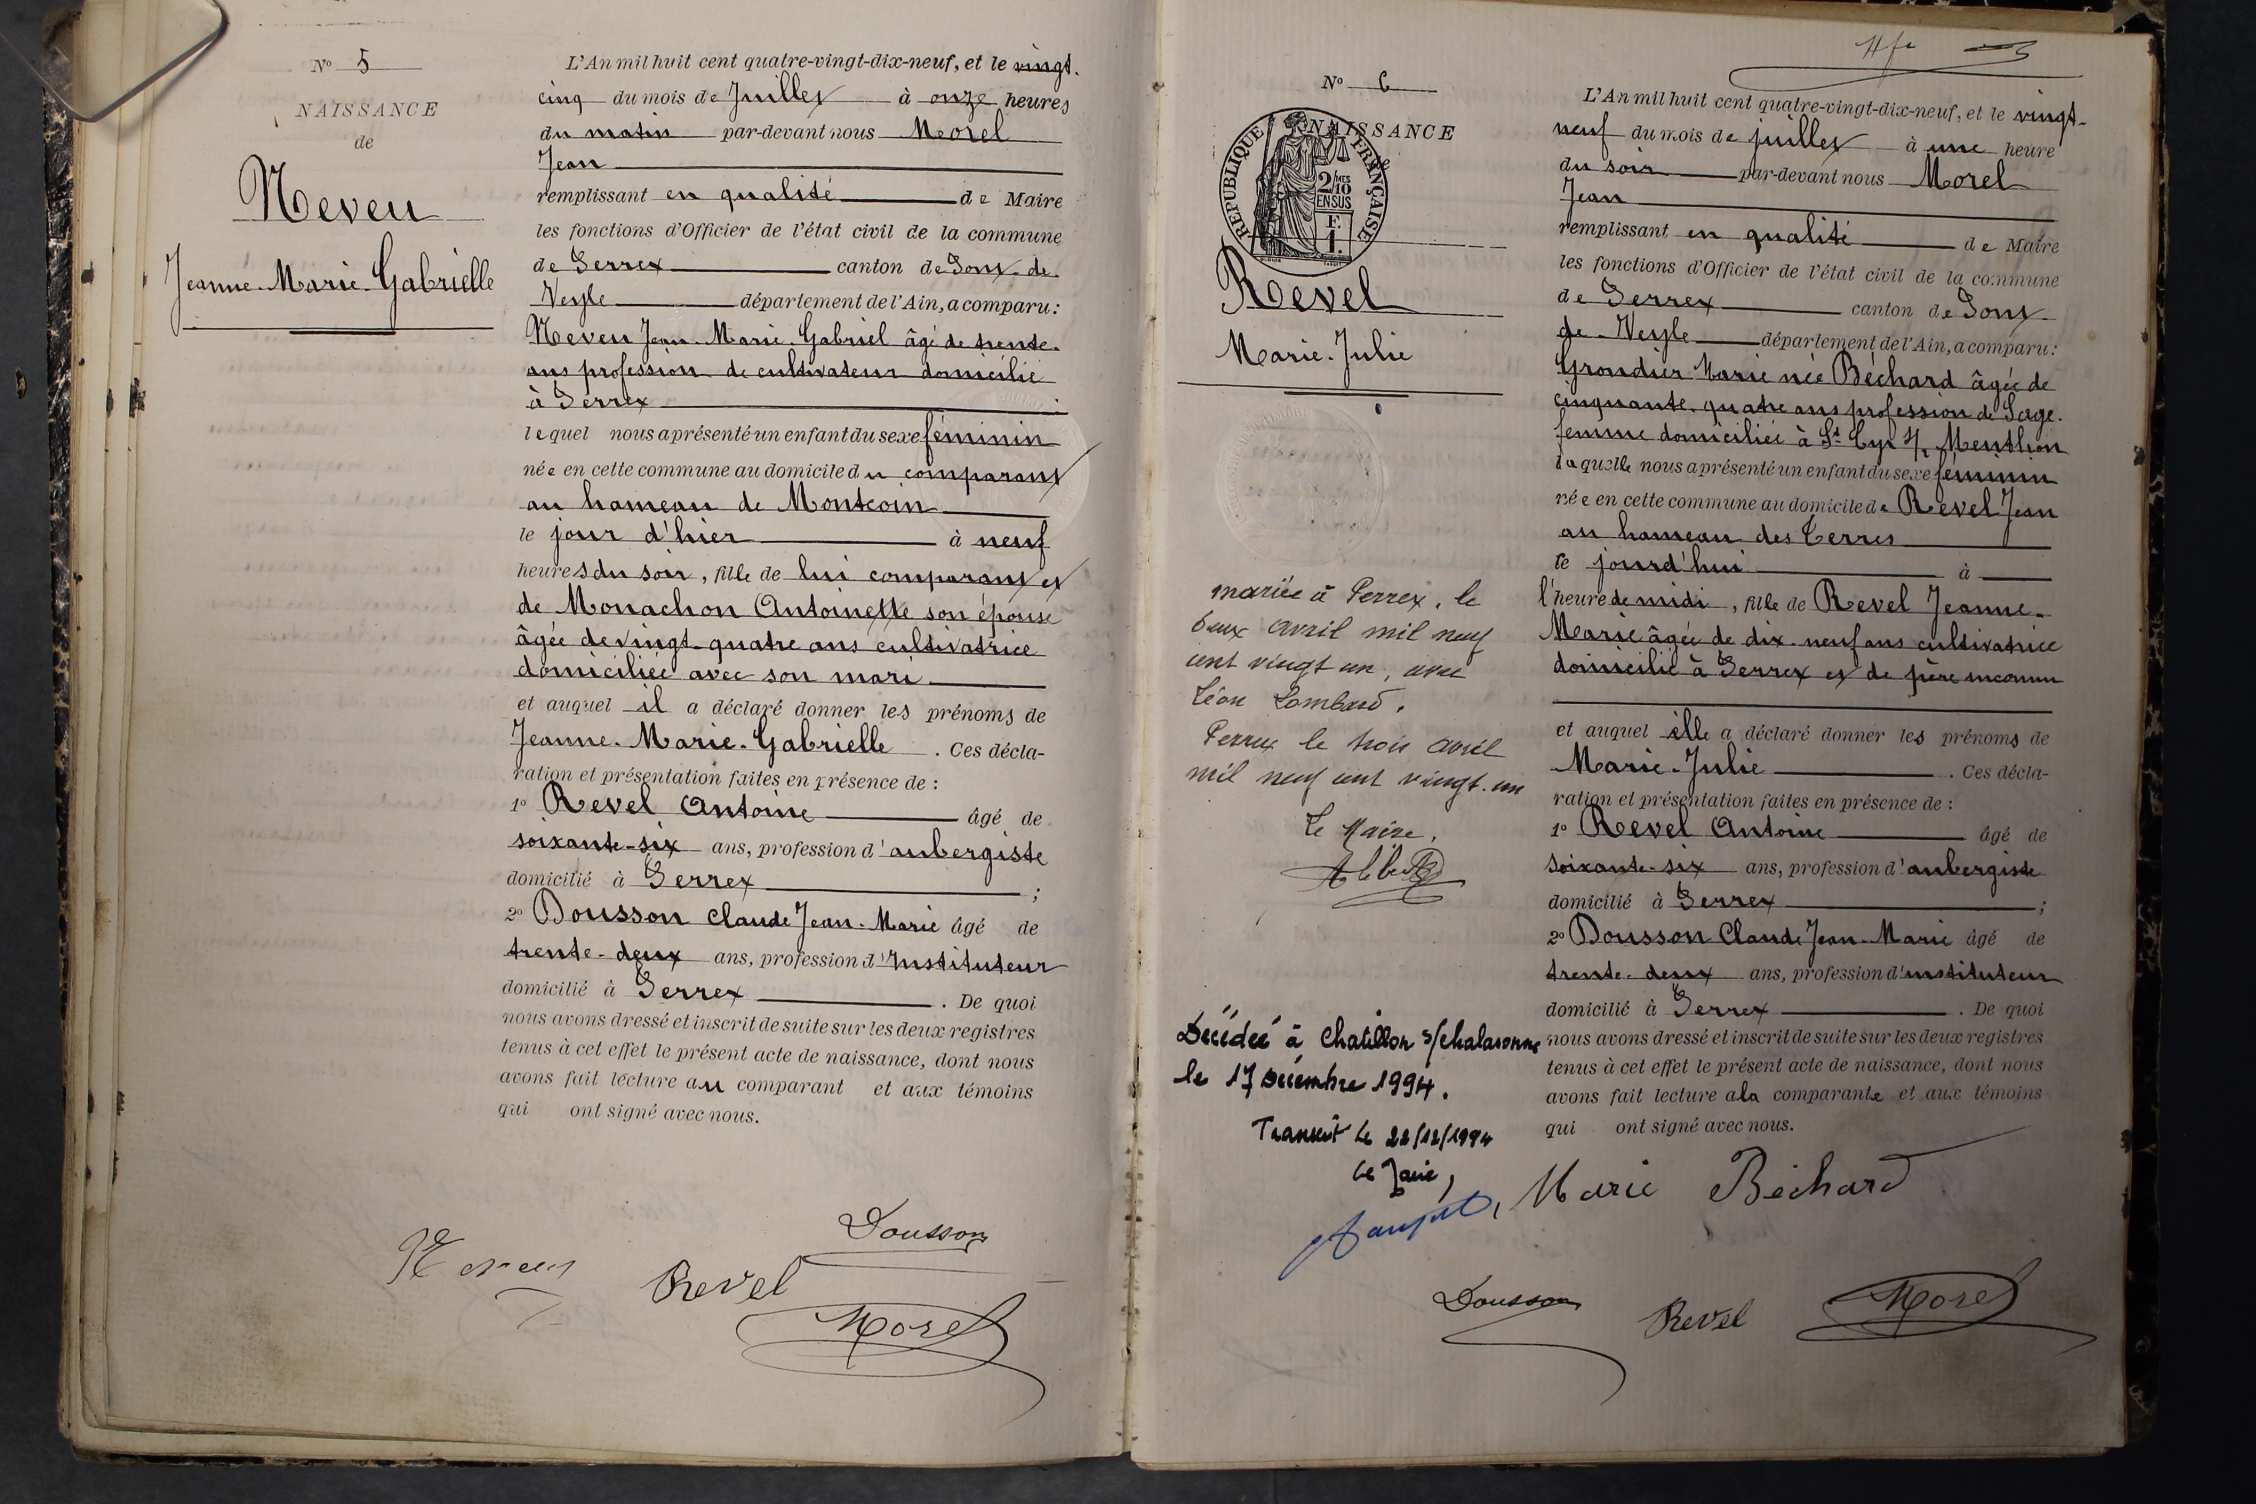 N° 5
NAISSANCE
de
Neveu
Jeanne-Marie-Gabrielle
L'An mil huit cent quatre-vingt-dix-neuf, et le vingt-
cinq du mois de Juillet à onze heures
du matin par-devant nous Morel
Jean
remplissant en qualité de Maire
les fonctions d'Officier de l'état civil de la commune
de Perrex canton de Pont-de-
Veyle département de l'Ain, a comparu:
Neveu Jean-Marie-Gabriel âgé de trente-
ans profession de cultivateur domicilié
à Perrex
lequel nous a présenté un enfant du sexe féminin
née en cette commune au domicile du comparant
au hameau de Montcoin
le jour d'hier à neuf
heures du soir, fille de lui comparant et
de Monachon Antoinette son épouse
âgée de vingt-quatre ans cultivatrice
domiciliée avec son mari
et auquel il a déclaré donner les prénoms de
Jeanne-Marie-Gabrielle. Ces décla-
ration et présentation faites en présence de:
1° Revel Antoine âgé de
soixante-six ans, profession d'aubergiste
domicilié à Perrex;
2° Dousson Claude Jean-Marie âgé de
trente-deux ans, profession d'Instituteur
domicilié à Perrex. De quoi
nous avons dressé et inscrit de suite sur les deux registres
tenus à cet effet le présent acte de naissance, dont nous
avons fait lecture au comparant et aux témoins
qui ont signé avec nous.
Dousson
Neveu
Revel
Morel
N° 6
NAISSANCE
RÉPUBLIQUE FRANÇAISE
2/10 MES
EN SUS
F.
1.
Revel
Marie-Julie
mariée à Perrex, le
deux avril mil neuf
cent vingt un, avec
Léon Lombard.
Perrex le trois avril
mil neuf cent vingt-un
Le Maire,
Décédée à Chatillon s/Chalaronne
le 17 Décembre 1994.
Transcrit le 22/12/1994
Le Maire,
L'An mil huit cent quatre-vingt-dix-neuf, et le vingt-
neuf du mois de juillet à une heure
du soir par-devant nous Morel
Jean
remplissant en qualité de Maire
les fonctions d'Officier de l'état civil de la commune
de Perrex canton de Pont-
de-Veyle département de l'Ain, a comparu:
Grondier Marie née Béchard âgée de
cinquante-quatre ans profession de Sage-
femme domiciliée à St Cyr s/ Menthon
laquelle nous a présenté un enfant du sexe féminin
née en cette commune au domicile de Revel Jean
au hameau des Terres
le jourd'hui à
l'heure de midi, fille de Revel Jeanne-
Marie âgée de dix-neuf ans cultivatrice
domicilié à Perrex et de père inconnu
et auquel elle a déclaré donner les prénoms de
Marie-Julie. Ces décla-
ration et présentation faites en présence de:
1° Revel Antoine âgé de
soixante-six ans, profession d'aubergiste
domicilié à Perrex;
2° Dousson Claude Jean-Marie âgé de
trente-deux ans, profession d'instituteur
domicilié à Perrex. De quoi
nous avons dressé et inscrit de suite sur les deux registres
tenus à cet effet le présent acte de naissance, dont nous
avons fait lecture à la comparante et aux témoins
qui ont signé avec nous.
Marie Béchard
Dousson
Revel
Morel